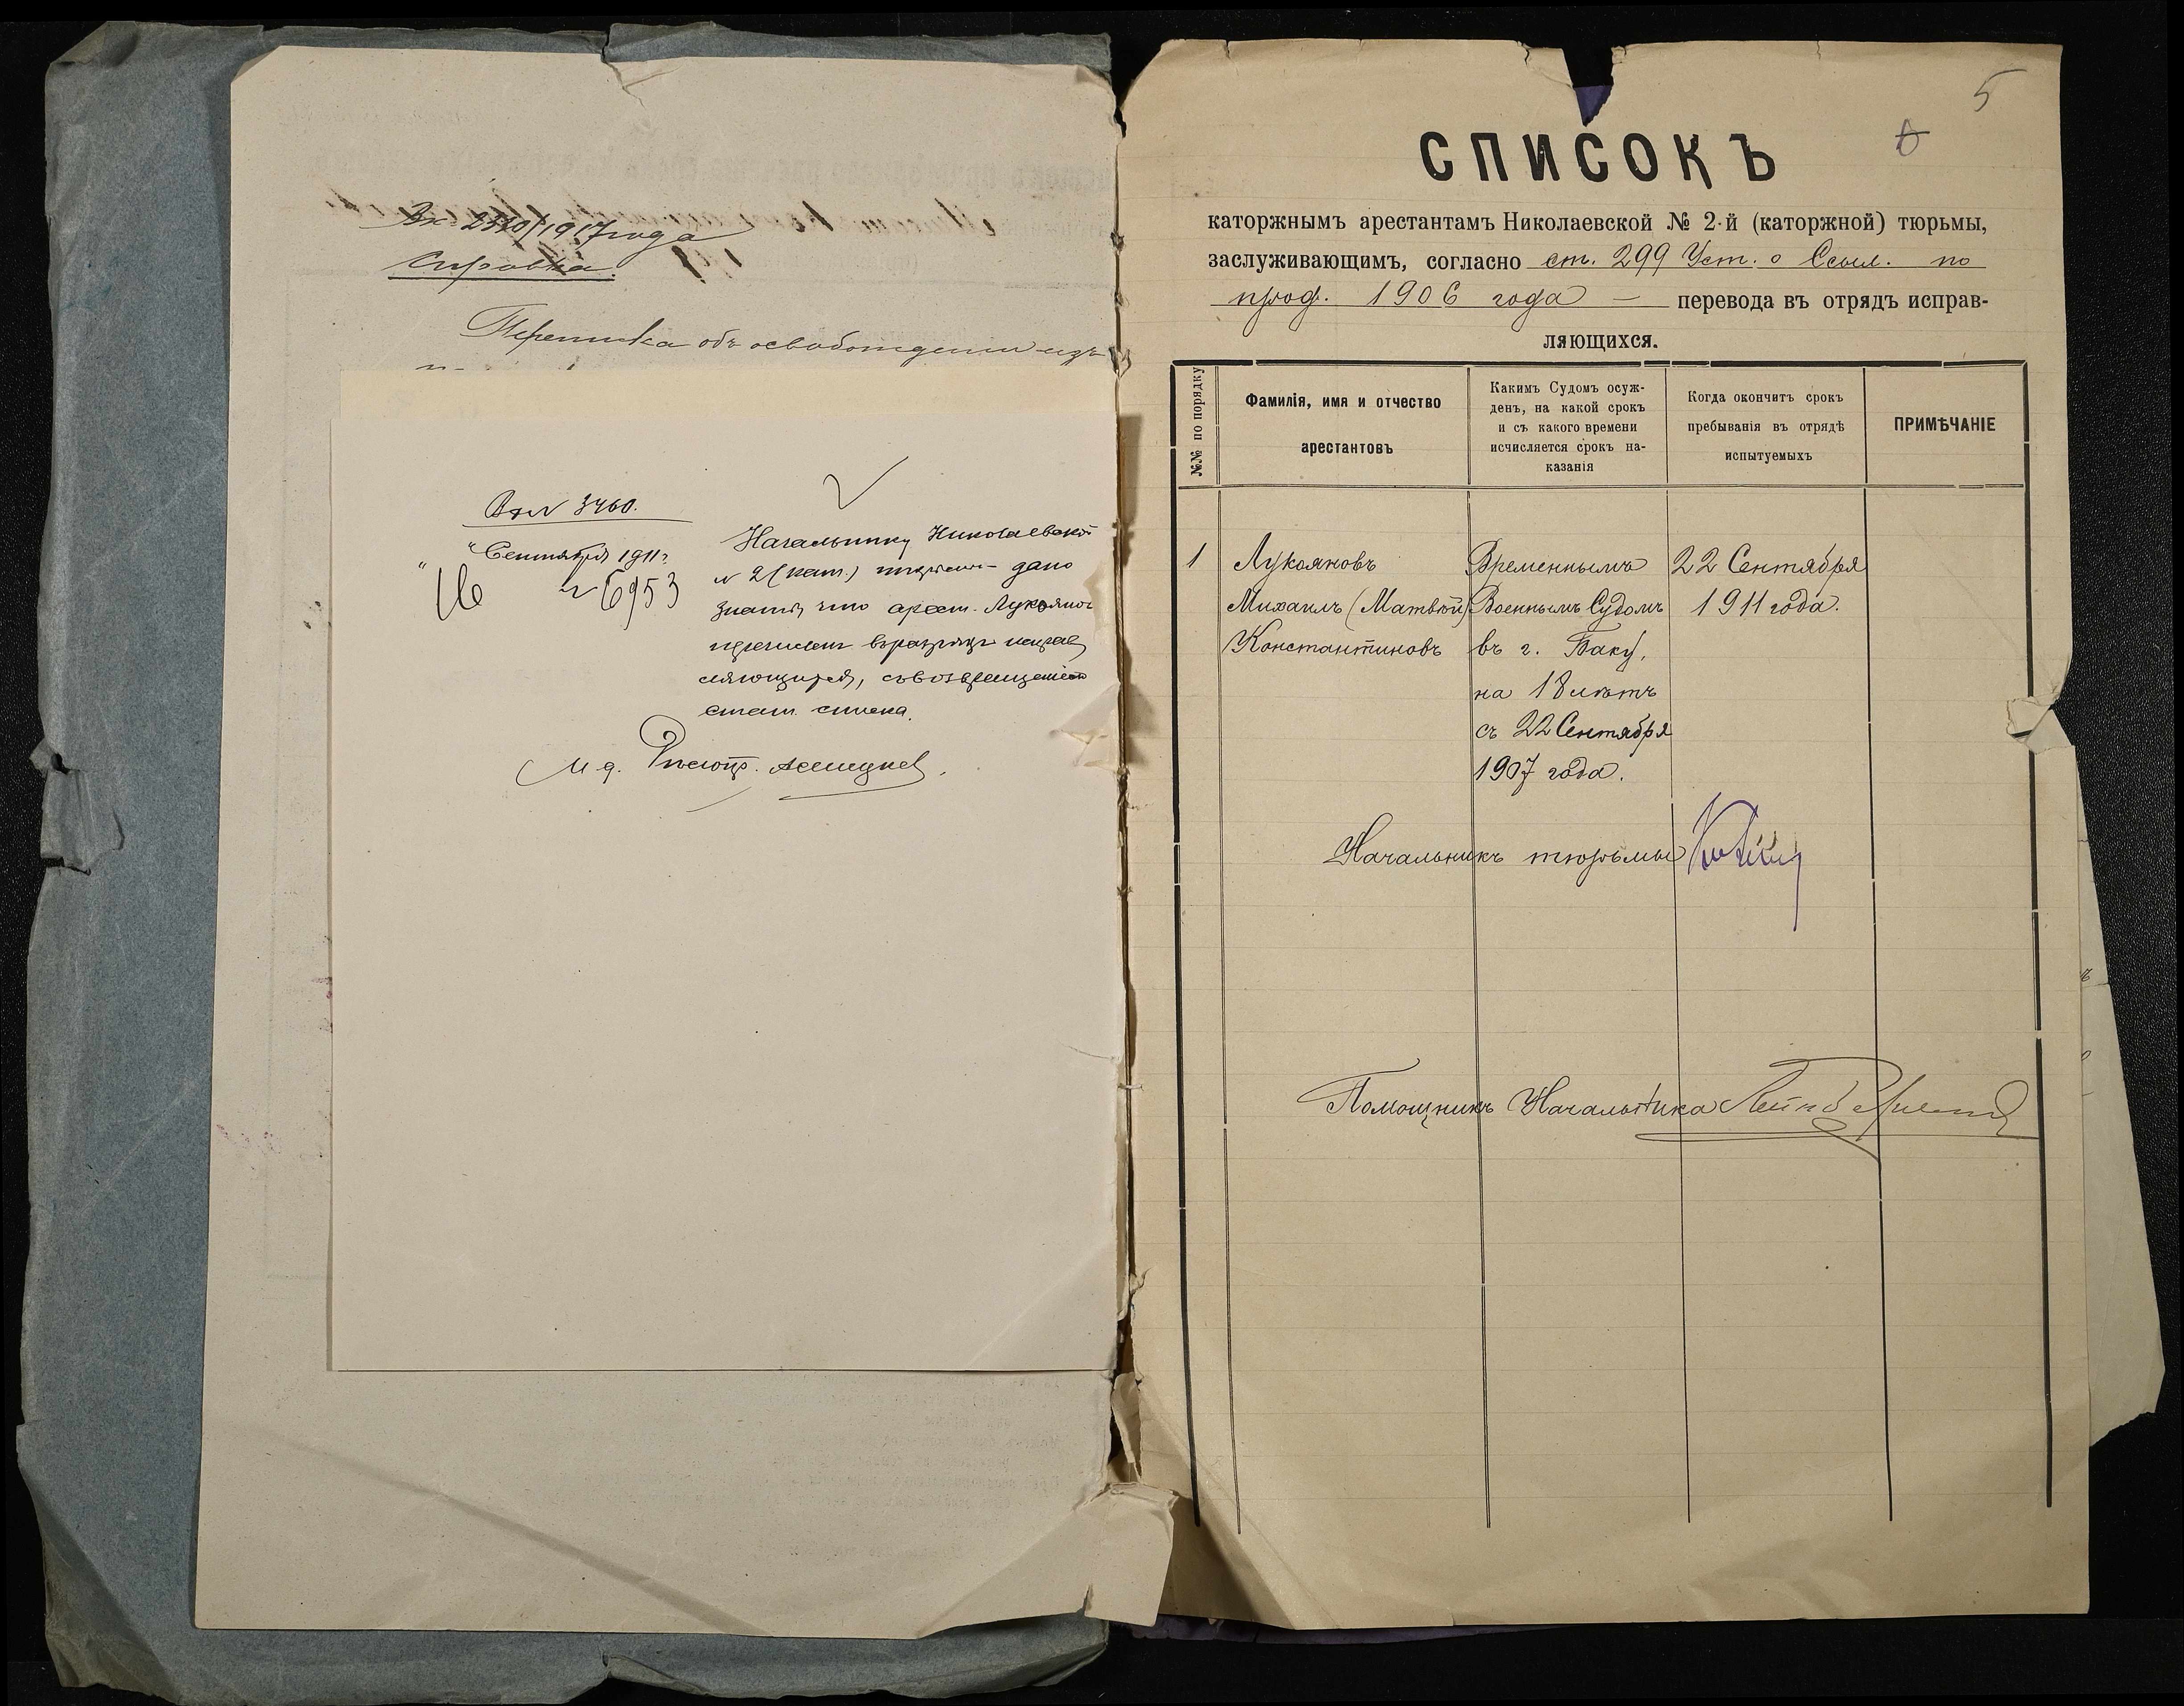 Вх. 2320/1917 года
Справка.
Переписка объ освобожденіи изъ
Вх. N 3460.
"Сентября 1911 г.
16 N 6953
Начальнику Николаевской
N 2 (кат.) тюрьмы дано
знать, что арест. Лукоянов
перечислен въ разрядъ исправ
ляющихся, съ возвращеніем
стат. списка.
И. д.
5
6
СПИСОКЪ
каторжнымъ арестантамъ Николаевской № 2-й (каторжной) тюрьмы,
заслуживающимъ, согласно ст. 299 Уст. о Ссыл. по
прод. 1906 года — перевода въ отрядъ исправ-
ляющихся.
№№ по порядку
Фамилія, имя и отчество
арестантовъ
Какимъ Судомъ осуж-
денъ, на какой срокъ
и съ какого времени
исчисляется срокъ на-
казанія
Когда окончитъ срокъ
пребыванія въ отрядѣ
испытуемыхъ
ПРИМѢЧАНІЕ
1
Лукояновъ
Михаилъ (Матвѣй)
Константиновъ
Временнымъ
Военнымъ Судомъ
въ г. Баку,
на 18 лѣтъ
съ 22 Сентября
1907 года.
22 Сентября
1911 года.
Начальникъ тюрьмы
Помощникъ Начальника